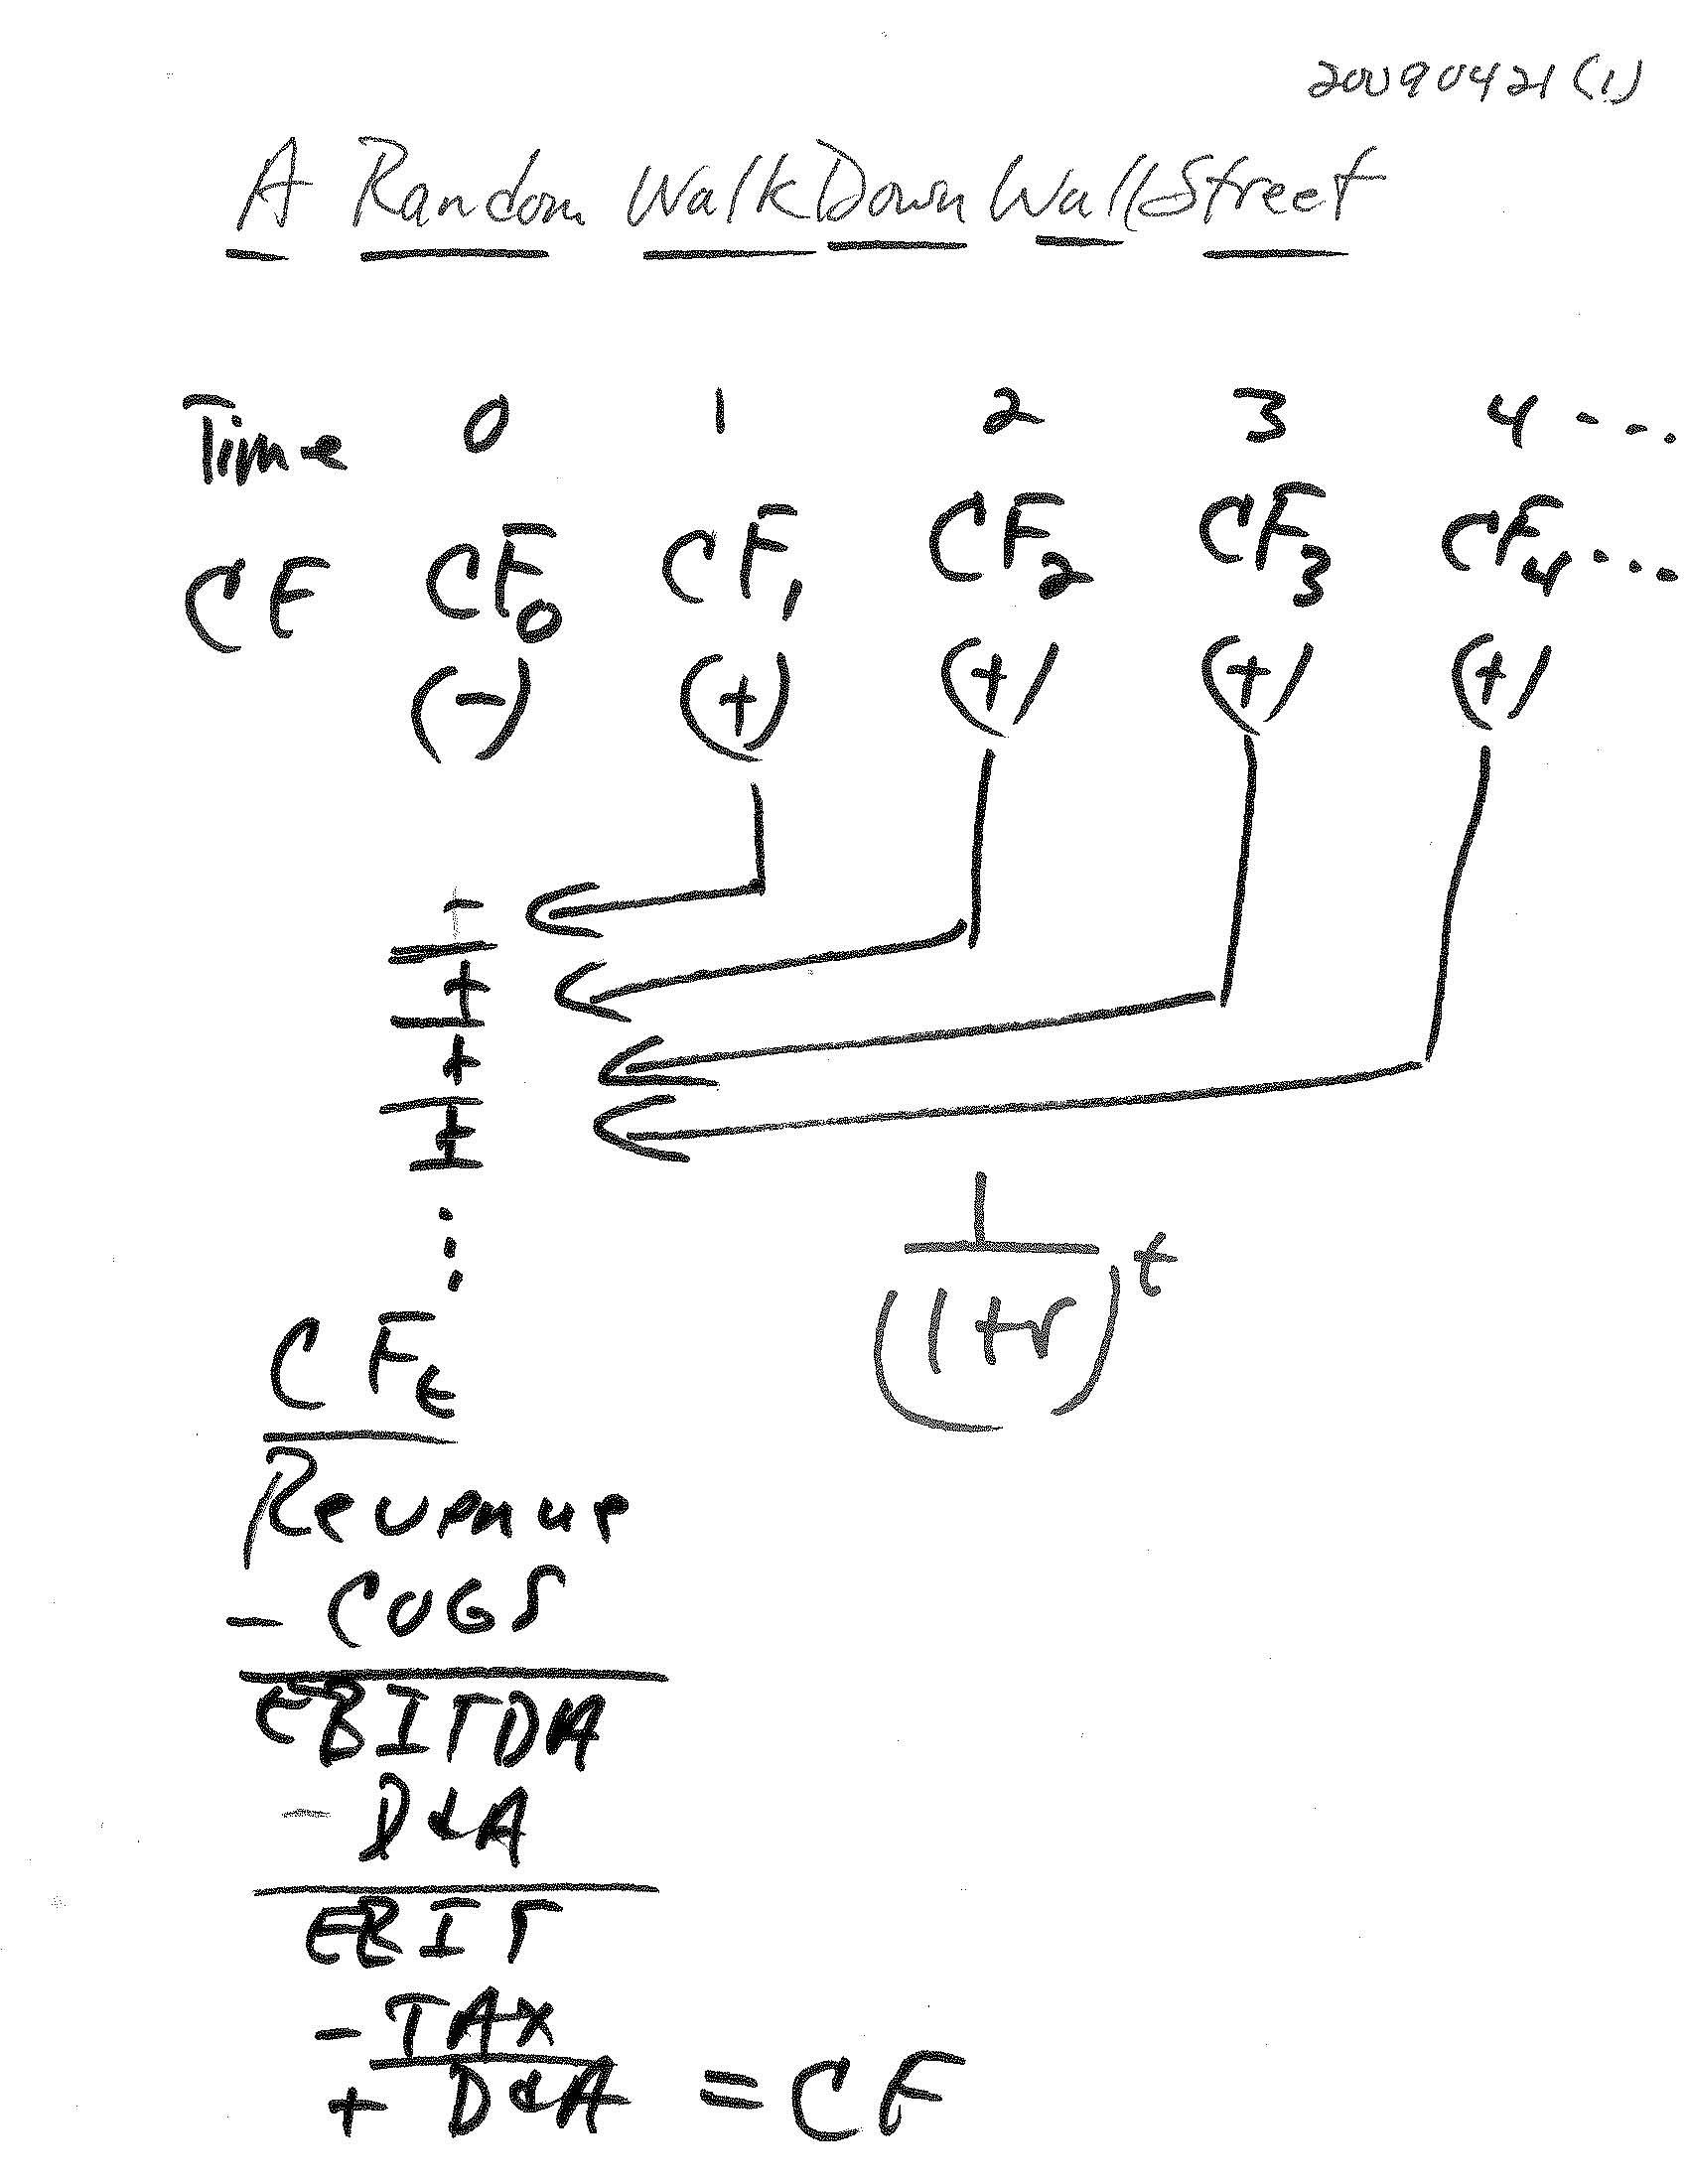 20090421(1)
A Random Walk Down Wall Street
Time 0 1 2 3 4 ...
CF CF0 CF1 CF2 CF3 CF4 ...
(-) (+) (+) (+) (+)
-
+
+
+
⋮
1
(1+r)^t
CFt
Revenue
- COGS
EBITDA
- D&A
EBIT
- TAX
+ D&A = CF